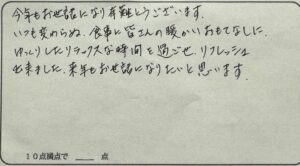 今年もお世話になり有難とうございます.
いつも変わらぬ、食事に皆さんの暖かいおもてなしに.
ゆっくりしたリラックスな時間を過ごせ.リフレッシュ
出来ました.来年もお世話になりたいと思います.
10点満点で ___ 点